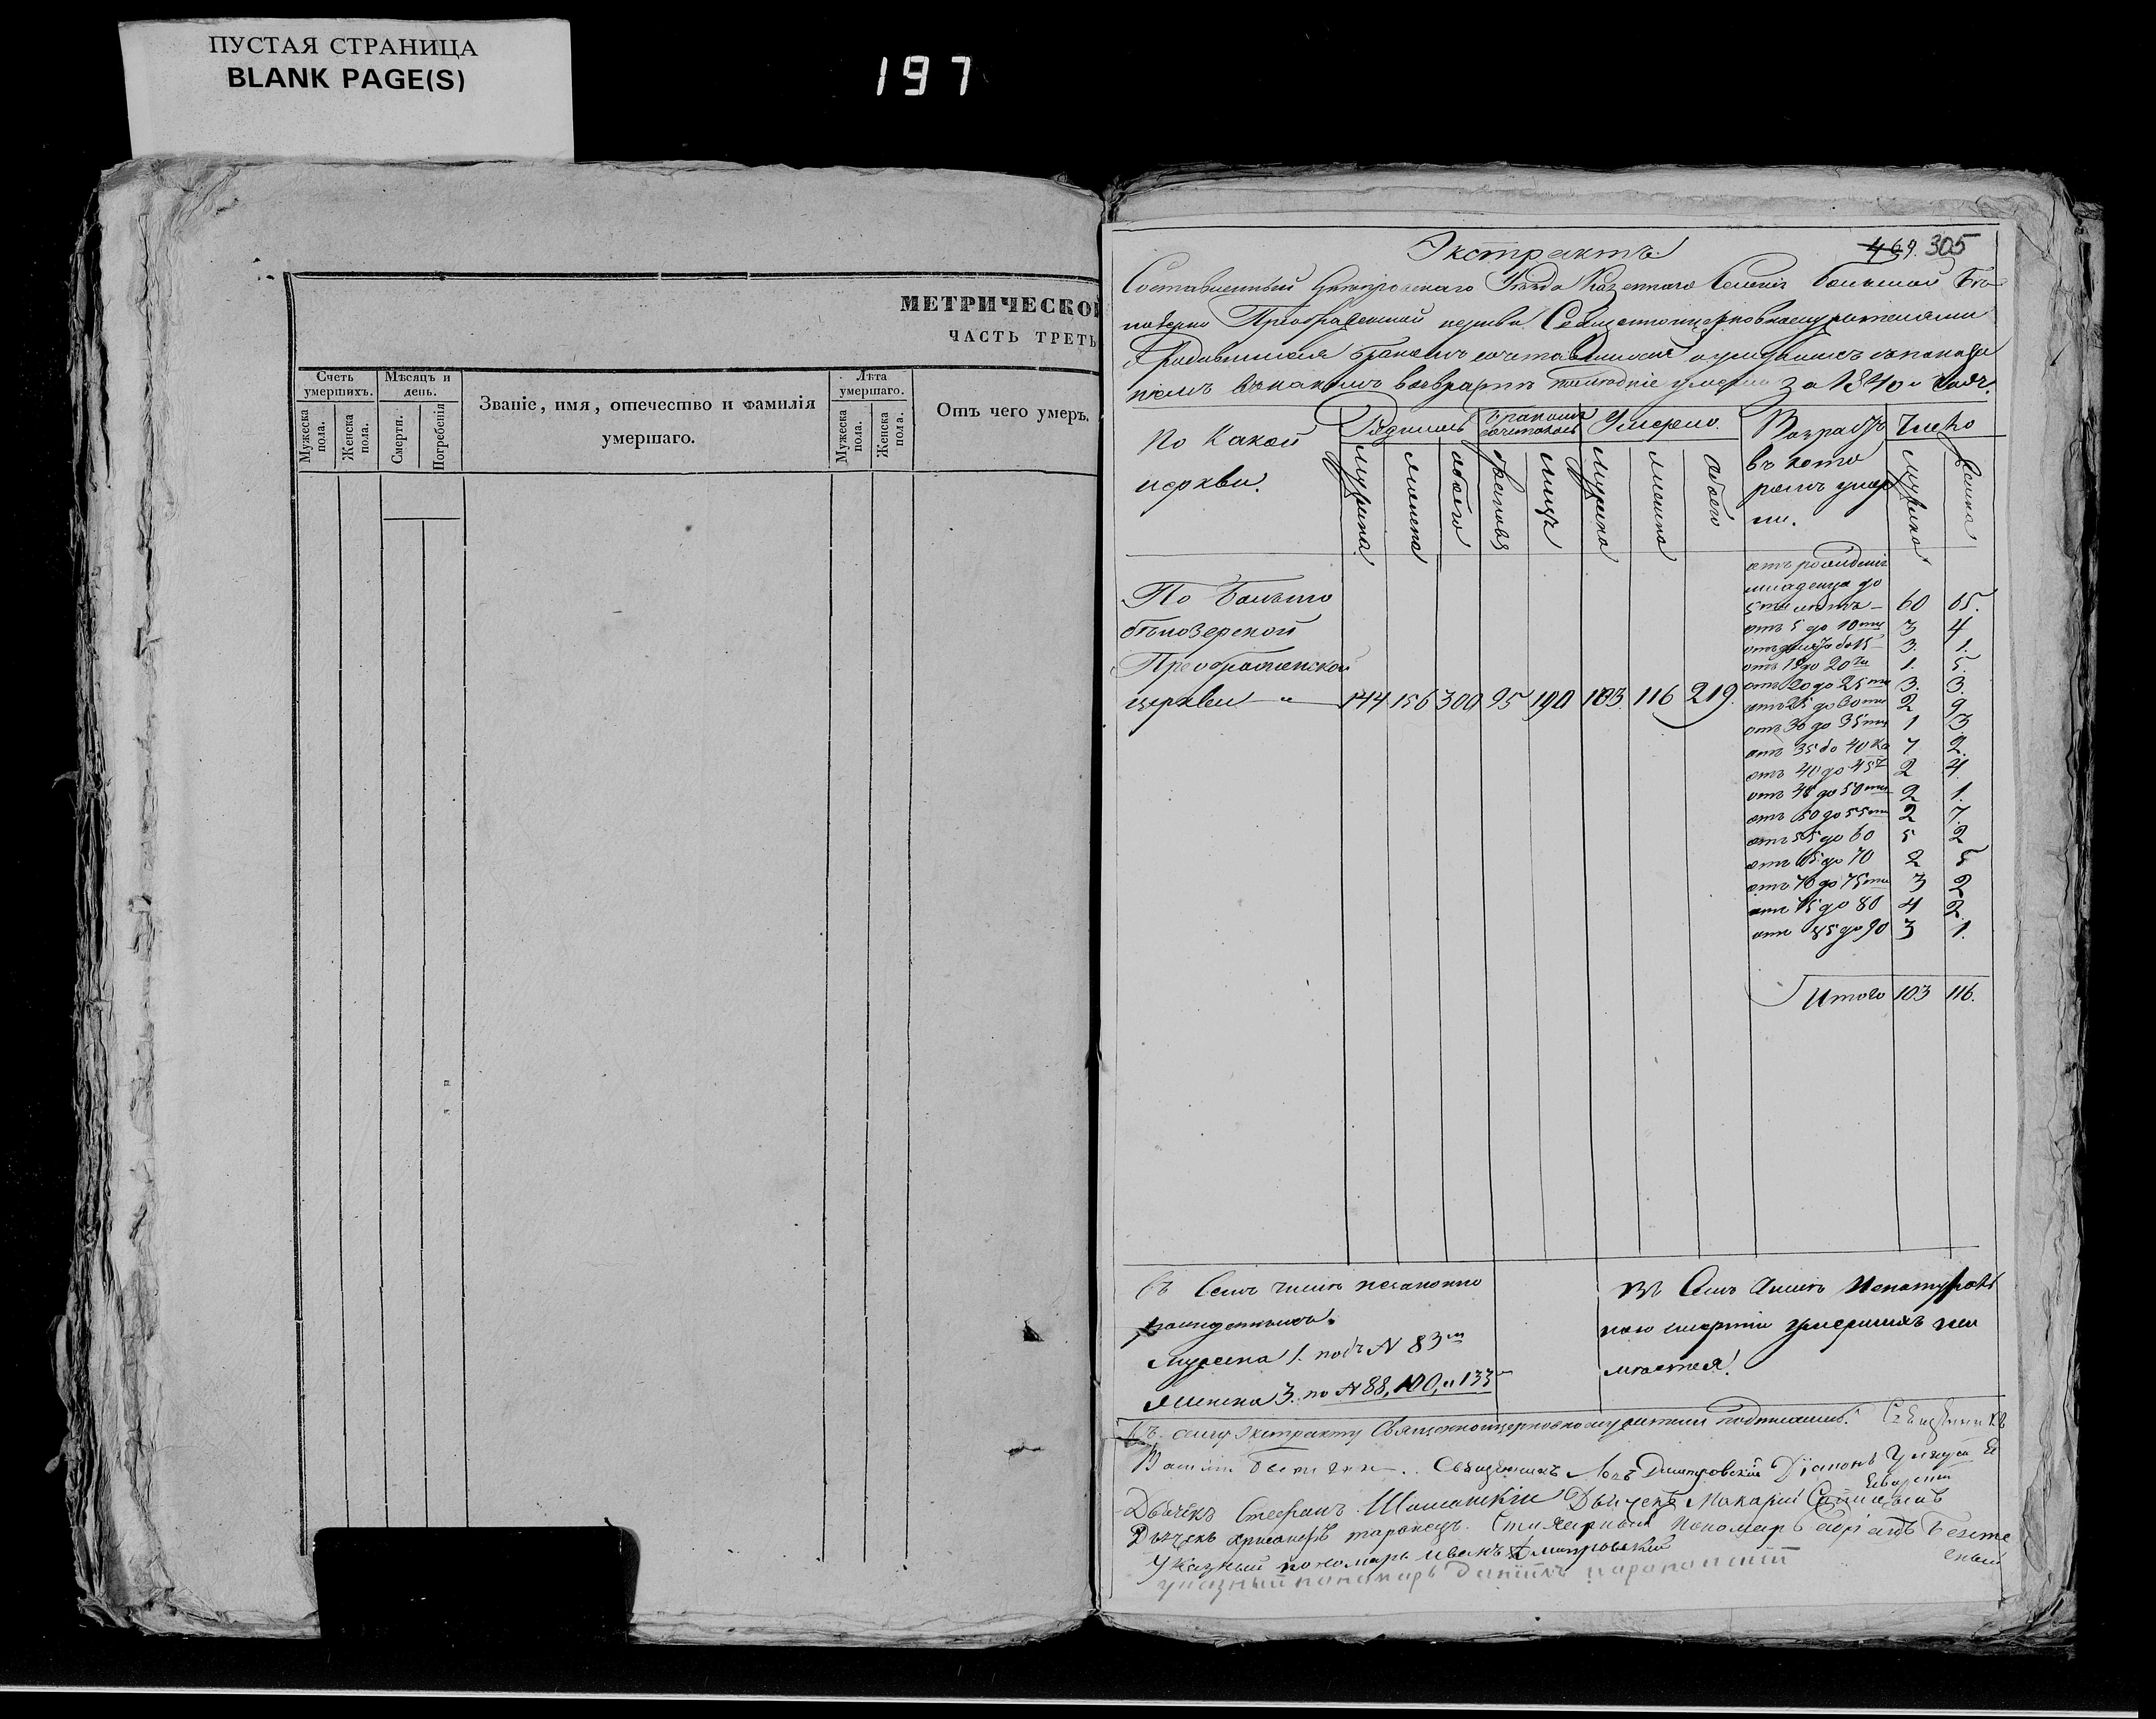 ПУСТАЯ СТРАНИЦА
BLANK PAGE(S)
197
МЕТРИЧЕСКОЙ
ЧАСТЬ ТРЕТЬ
Счетъ умершихъ.
Мужеска пола.
Женска пола.
Мѣсяцъ и день.
Смерти.
Погребенія
Званіе, имя, отечество и фамилія
умершаго.
Лѣта умершаго.
Мужеска пола.
Женска пола.
Отъ чего умеръ.
Экстрактъ
469. 305
Составленный Днѣпровскаго Уѣзда Казеннаго Селенія Большой Бѣ-
лозерки Преображенской церкви Священноцерковнослужителями
за 1840й годъ.
По Какой
церкви.
Родились
мужеска
женска
обоего
Бракомъ сочетались
браковъ
лицъ
Умерло.
мужеска
женска
обоего
Возрастъ
въ кото
ромъ умер
ли.
Число
мужеска
женска
По Больше
бѣлозерской
Преображенской
церкви - " - 144 156 300 95 190 103 116 219.
отъ рожденія
младенца до
5ти лѣтъ - 60 65.
отъ 5 до 10ти 3 4
до 15 3. 1.
отъ 15 до 20ти 1. 5.
отъ 20 до 25ти 3. 3.
отъ 25 до 30ти 2 9
отъ 30 до 35ти 1 3
отъ 35 до 40ка 7 2.
отъ 40 до 45ти 2 4
отъ 45 до 50ти 2 1.
отъ 50 до 55ти 2 7.
отъ 55 до 60 5 2
отъ 65 до 70 2 5
отъ 70 до 75ти 3 2
отъ 75 до 80 4 2.
отъ 85 до 90 3 1.
Итого 103 116.
Въ Семъ числѣ незаконно
рожденныхъ.
мужеска 1. подъ № 83м
женска 3. по № 88, 100, и 133
Въ Семъ числѣ Ненатураль
ною смертію умершихъ не и
мѣется.
Къ сему Экстракту Священноцерковнослужители подписались. Священникъ
Священникъ Димитровскій Діаконъ
Дьячекъ Стефанъ Шошанскій Дьячекъ Макарій
Дьячекъ Стихарный Пономарь
Указный пономарь Иванъ Дмитровскій
указный пономарь Даніилъ